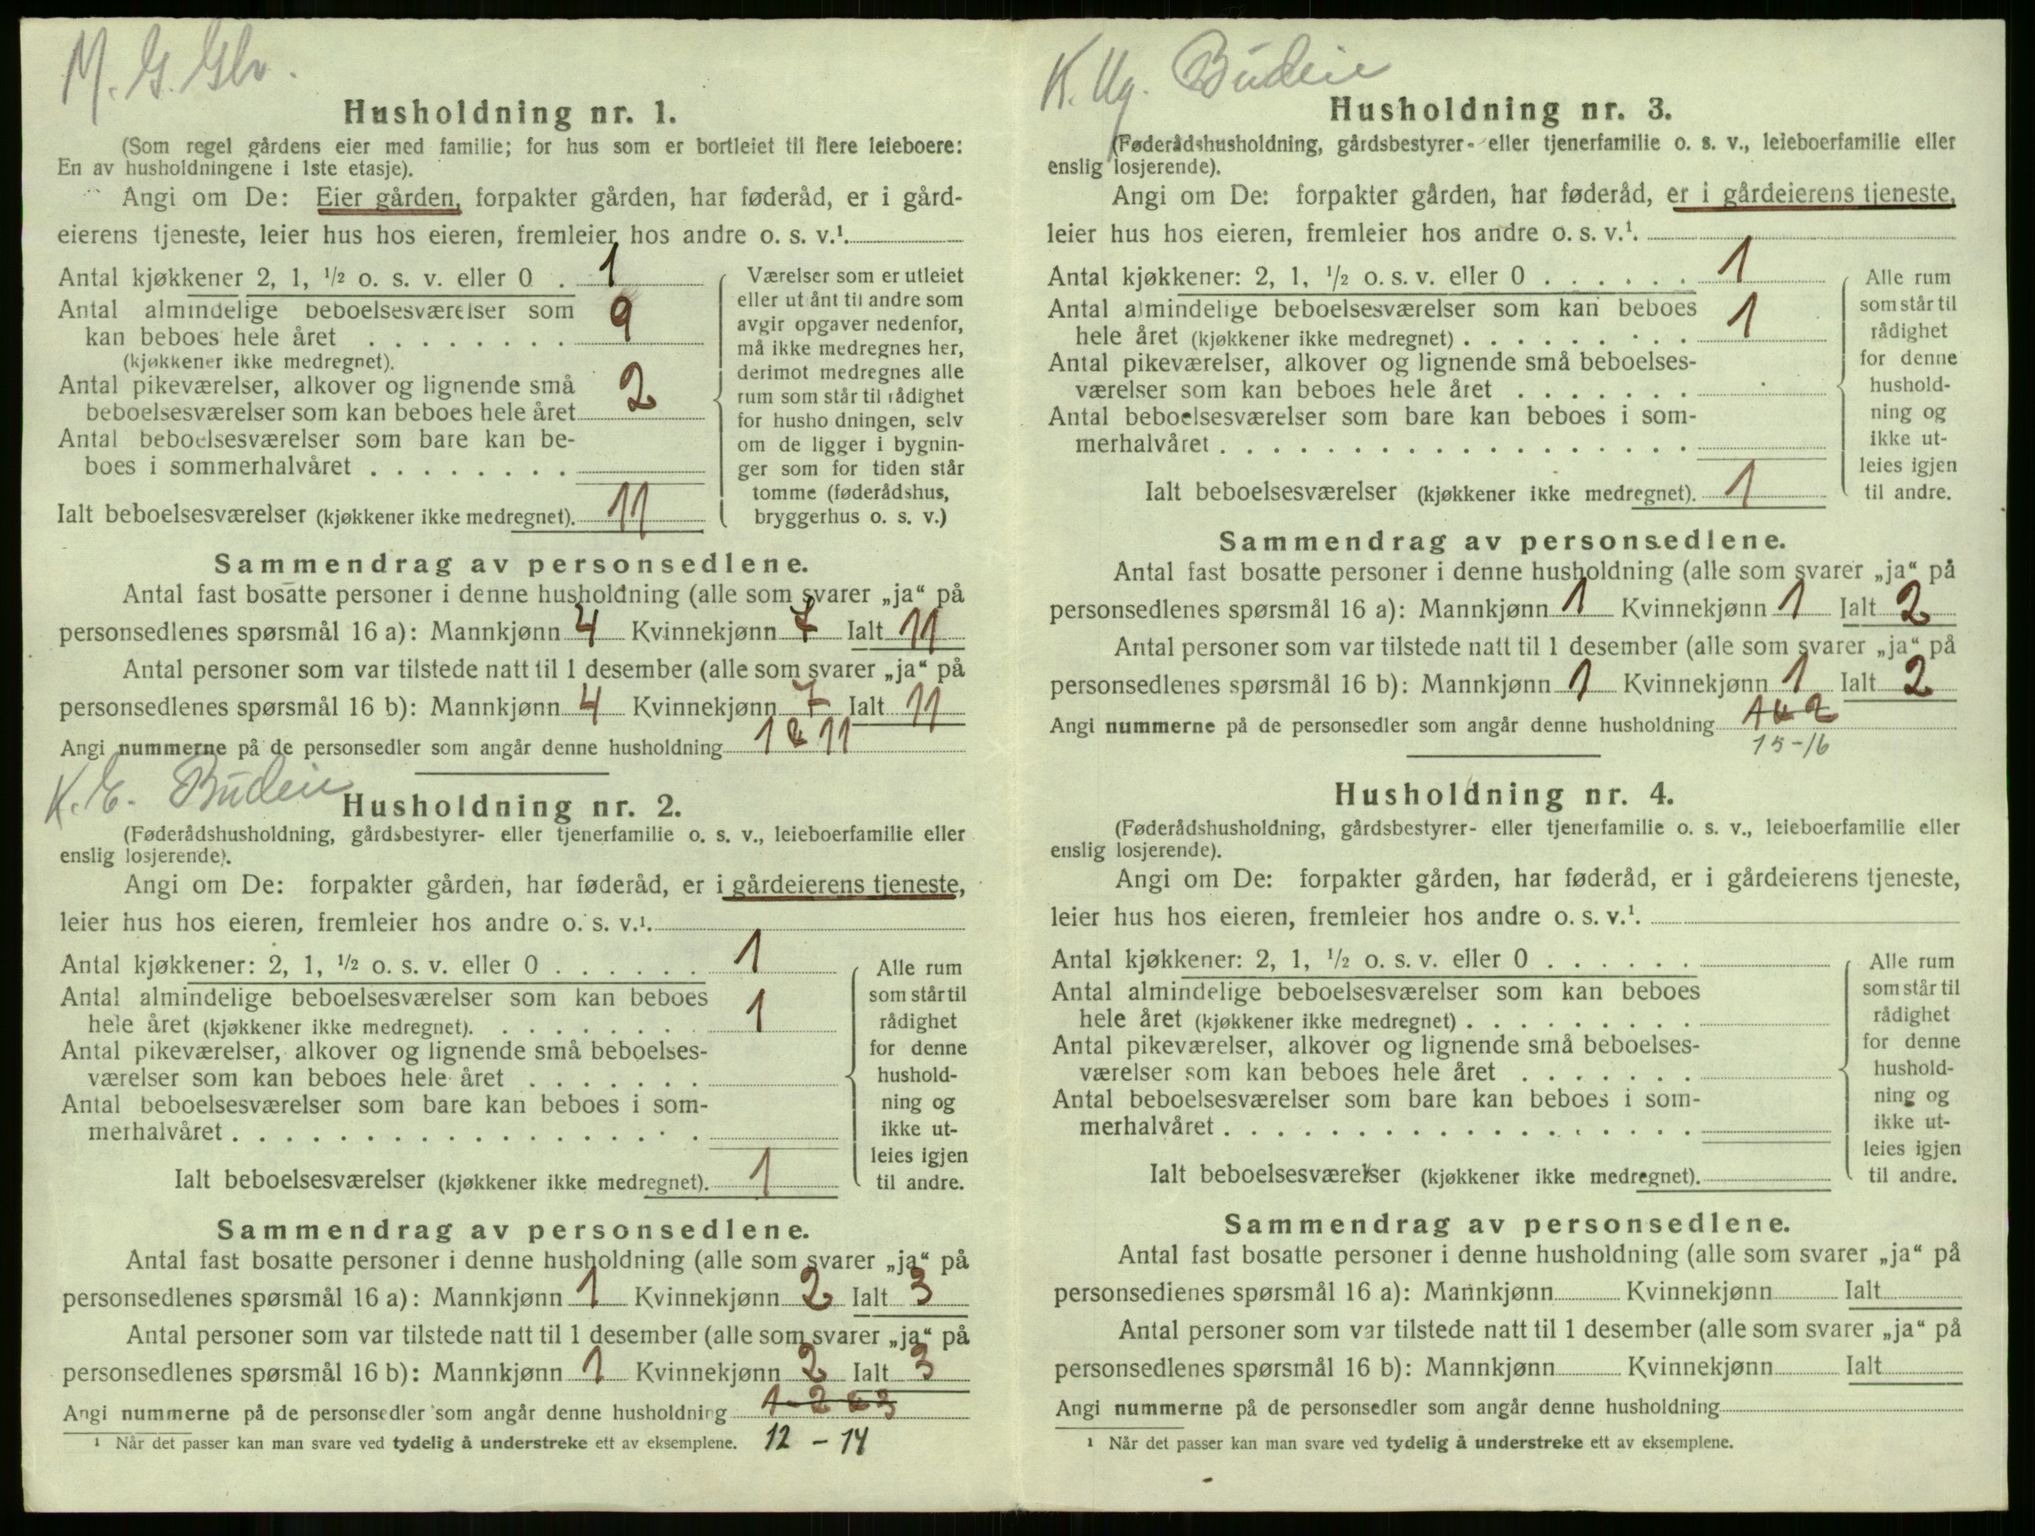 M. G. Glv.
Husholdning nr. 1.
(Som regel gårdens eier med familie; for hus som er bortleiet til flere leieboere:
En av husholdningene i 1ste etasje).
Angi om De: Eier gården, forpakter gården, har føderåd, er i gård-
eierens tjeneste, leier hus hos eieren, fremleier hos andre o. s. v.¹.
Antal kjøkkener 2, 1, ½ o. s. v. eller 0 . 1
Antal almindelige beboelsesværelser som
kan beboes hele året . . . . . . . . 9
(kjøkkener ikke medregnet).
Antal pikeværelser, alkover og lignende små
beboelsesværelser som kan beboes hele året 2
Antal beboelsesværelser som bare kan be-
boes i sommerhalvåret . . . . . . . .
Ialt beboelsesværelser (kjøkkener ikke medregnet). 11
Værelser som er utleiet
eller ut ånt til andre som
avgir opgaver nedenfor,
må ikke medregnes her,
derimot medregnes alle
rum som står til rådighet
for husho dningen, selv
om de ligger i bygnin-
ger som for tiden står
tomme (føderådshus,
bryggerhus o. s. v.)
Sammendrag av personsedlene.
Antal fast bosatte personer i denne husholdning (alle som svarer „ja“ på
personsedlenes spørsmål 16 a): Mannkjønn 4 Kvinnekjønn 7 Ialt 11
Antal personer som var tilstede natt til 1 desember (alle som svarer „ja“ på
personsedlenes spørsmål 16 b): Mannkjønn 4 Kvinnekjønn 7 Ialt 11
Angi nummerne på de personsedler som angår denne husholdning 1 & 11
K. E. Budeie
Husholdning nr. 2.
(Føderådshusholdning, gårdsbestyrer- eller tjenerfamilie o. s. v., leieboerfamilie eller
enslig losjerende).
Angi om De: forpakter gården, har føderåd, er i gårdeierens tjeneste,
leier hus hos eieren, fremleier hos andre o. s. v.¹.
Antal kjøkkener: 2, 1, ½ o. s. v. eller 0 . . . . . . 1
Antal almindelige beboelsesværelser som kan beboes
hele året (kjøkkener ikke medregnet). . . . . . . . . 1
Antal pikeværelser, alkover og lignende små beboelses-
værelser som kan beboes hele året . . . . . . .
Antal beboelsesværelser som bare kan beboes i som-
merhalvåret . . . . . . . . . . . . . . . . . .
Ialt beboelsesværelser (kjøkkener ikke medregnet). 1
Alle rum
som står til
rådighet
for denne
hushold-
ning og
ikke ut-
leies igjen
til andre.
Sammendrag av personsedlene.
Antal fast bosatte personer i denne husholdning (alle som svarer „ja“ på
personsedlenes spørsmål 16 a): Mannkjønn 1 Kvinnekjønn 2 Ialt 3
Antal personer som var tilstede natt til 1 desember (alle som svarer „ja“ på
personsedlenes spørsmål 16 b): Mannkjønn 1 Kvinnekjønn 2 Ialt 3
Angi nummerne på de personsedler som angår denne husholdning 1 - 2 & 3
¹ Når det passer kan man svare ved tydelig å understreke ett av eksemplene. 12 - 14
K. Ug. Budeie
Husholdning nr. 3.
(Føderådshusholdning, gårdsbestyrer- eller tjenerfamilie o. s. v., leieboerfamilie eller
enslig losjerende).
Angi om De: forpakter gården, har føderåd, er i gårdeierens tjeneste,
leier hus hos eieren, fremleier hos andre o. s. v.¹.
Antal kjøkkener: 2, 1, ½ o. s. v. eller 0 . . . . . . 1
Antal almindelige beboelsesværelser som kan beboes
hele året (kjøkkener ikke medregnet) . . . . . . . . . 1
Antal pikeværelser, alkover og lignende små beboelses-
værelser som kan beboes hele året . . . . . . .
Antal beboelsesværelser som bare kan beboes i som-
merhalvåret . . . . . . . . . . . . . . . . . .
Ialt beboelsesværelser (kjøkkener ikke medregnet). 1
Alle rum
som står til
rådighet
for denne
hushold-
ning og
ikke ut-
leies igjen
til andre.
Sammendrag av personsedlene.
Antal fast bosatte personer i denne husholdning (alle som svarer „ja“ på
personsedlenes spørsmål 16 a): Mannkjønn 1 Kvinnekjønn 1 Ialt 2
Antal personer som var tilstede natt til 1 desember (alle som svarer „ja“ på
personsedlenes spørsmål 16 b): Mannkjønn 1 Kvinnekjønn 1 Ialt 2
Angi nummerne på de personsedler som angår denne husholdning 1 & 2
15-16
Husholdning nr. 4.
(Føderådshusholdning, gårdsbestyrer- eller tjenerfamilie o. s. v., leieboerfamilie eller
enslig losjerende).
Angi om De: forpakter gården, har føderåd, er i gårdeierens tjeneste,
leier hus hos eieren, fremleier hos andre o. s. v.¹.
Antal kjøkkener: 2, 1, ½ o. s. v. eller 0 . . . . . .
Antal almindelige beboelsesværelser som kan beboes
hele året (kjøkkener ikke medregnet) . . . . . . . . .
Antal pikeværelser, alkover og lignende små beboelses-
værelser som kan beboes hele året . . . . . . .
Antal beboelsesværelser som bare kan beboes i som-
merhalvåret . . . . . . . . . . . . . . . . . .
Ialt beboelsesværelser (kjøkkener ikke medregnet).
Alle rum
som står til
rådighet
for denne
hushold-
ning og
ikke ut-
leies igjen
til andre.
Sammendrag av personsedlene.
Antal fast bosatte personer i denne husholdning (alle som svarer „ja“ på
personsedienes spørsmål 16 a): Mannkjønn Kvinnekjønn Ialt
Antal personer som var tilstede natt til 1 desember (alle som svarer „ja“ på
personsedlenes spørsmål 16 b): Mannkjønn Kvinnekjønn Ialt
Angi nummerne på de personsedler som angår denne husholdning
¹ Når det passer kan man svare ved tydelig å understreke ett av eksemplene.